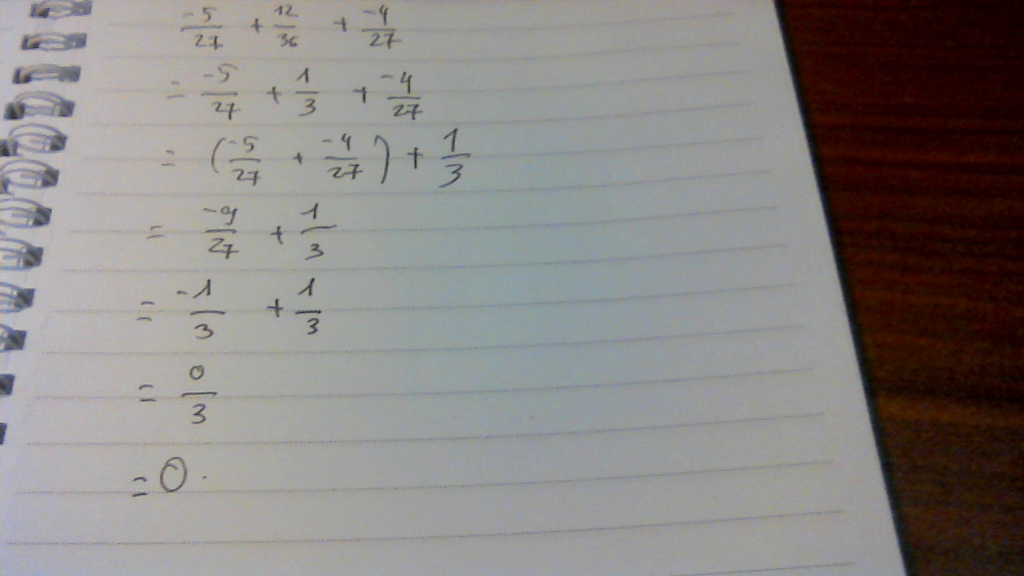 -5/27 + 12/36 + -4/27
= -5/27 + 1/3 + -4/27
= (-5/27 + -4/27) + 1/3
= -9/27 + 1/3
= -1/3 + 1/3
= 0/3
= 0.